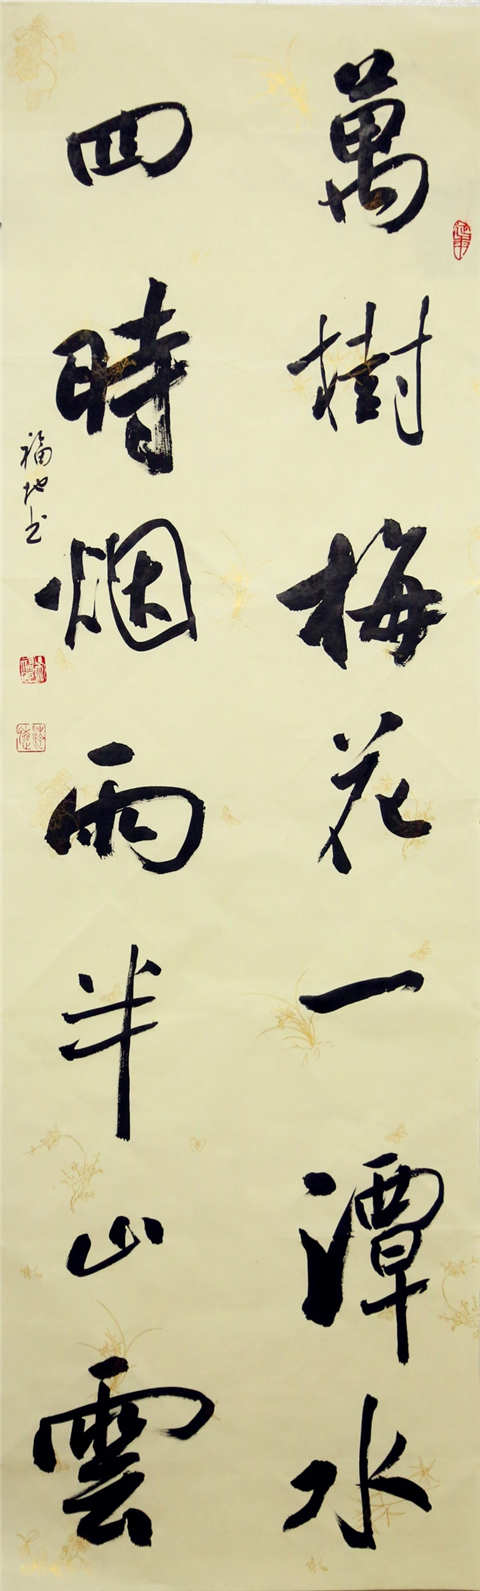 萬樹梅花一潭水
四時烟雨半山雲
福地书